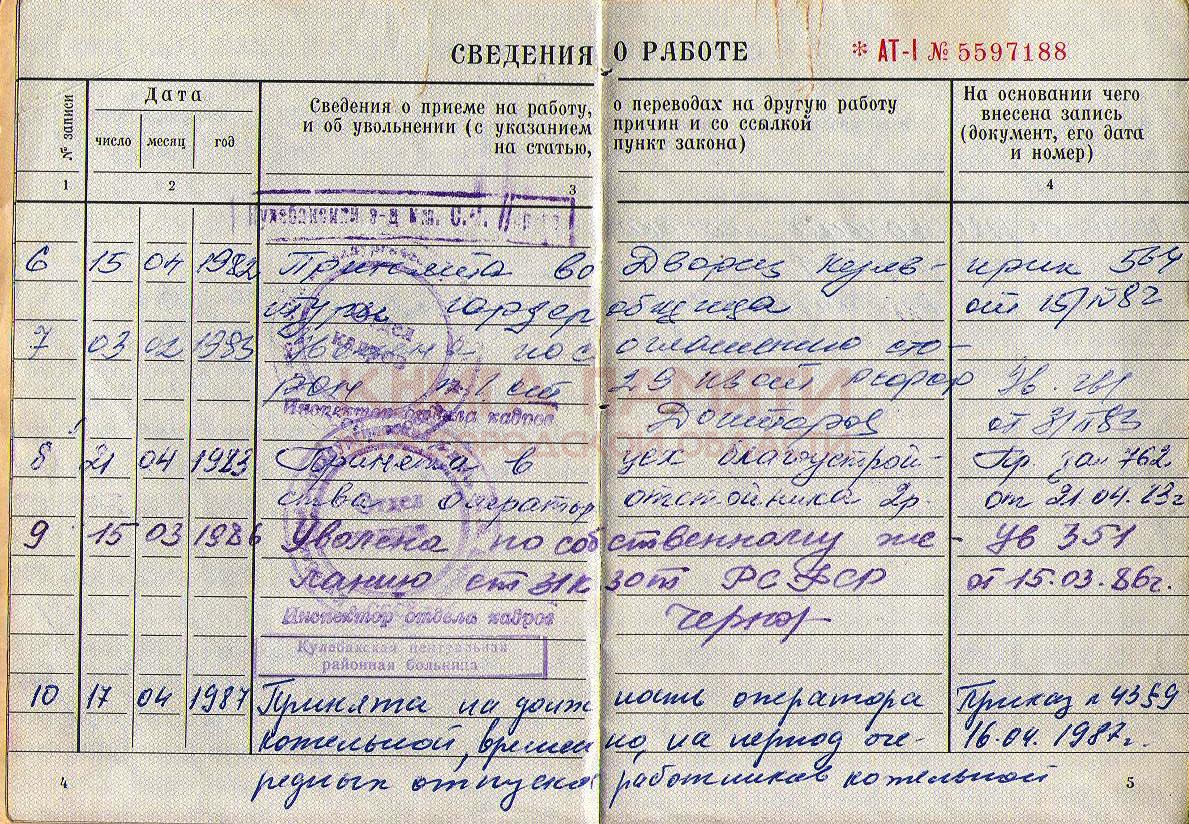 СВЕДЕНИЯ О РАБОТЕ * АТ-I № 5597188
№ записи
Дата
число месяц год
Сведения о приеме на работу, о переводах на другую работу
и об увольнении (с указанием причин и со ссылкой
на статью, пункт закона)
На основании чего
внесена запись
(документ, его дата
и номер)
1 2 3 4
Кулебакский з-д им. С.
6 15 04 1982 Принята во Дворец куль-
туры гардеробщица
7 03 02 1983 по соглашению сто-
рон ст 29
КНИГА ПАМЯТИ
НИЖЕГОРОДСКОЙ ОБЛАСТИ
Инспектор отдела кадров
8 21 04 1983 Принята в цех благоустрой- 762
ства оператор отстойника 2р. от 21.04.83г
9 15 03 1986 Уволена по собственному же- Ув 351
ланию ст 31 КЗОТ РСФСР от 15.03.86г.
Инспектор отдела кадров
Кулебакская центральная
районная больница
10 17 04 1987 Принята на должность оператора Приказ n 4359
котельной, временно, на период оче- 16.04.1987г.
редных отпусков работников котельной
4 5